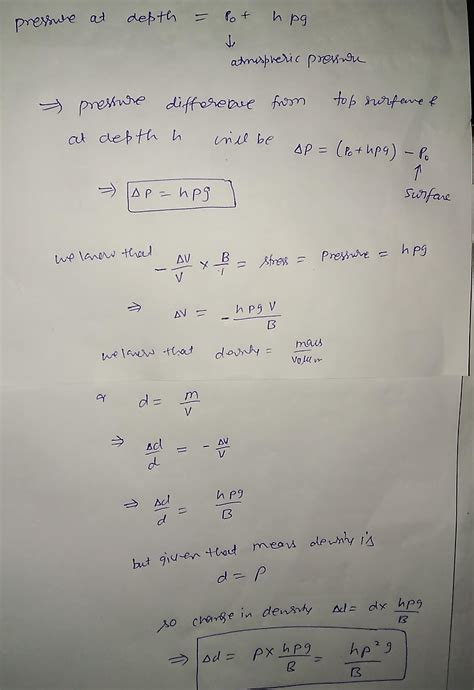 pressure at depth = P₀ + hρg
↓
atmospheric pressure
⇒ pressure difference from top surface &
at depth h will be ΔP = (P₀ + hρg) - P₀
↑
surface
⇒ ΔP = hρg
we know that -ΔV/V × B/1 = stress = pressure = hρg
⇒ ΔV = - hρgV/B
we know that density = mass/volum
d = m/V
⇒ Δd/d = - ΔV/V
⇒ Δd/d = hρg/B
but given that means density is
d = ρ
so change in density Δd = d× hρg/B
⇒ Δd = ρ× hρg/B = hρ²g/B